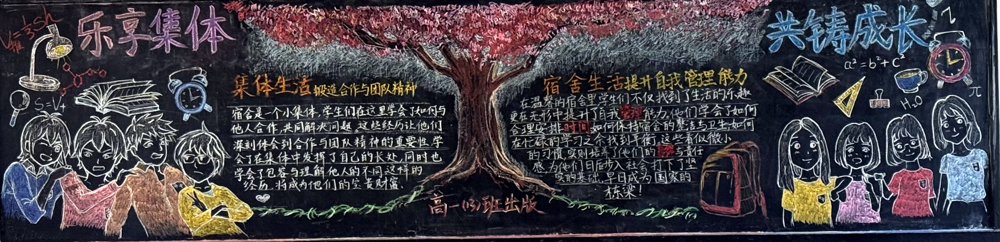 乐享集体
共铸成长
V=⅓sh
S=Vt
a²=b²+c²
H₂O
π
集体生活锻造合作与团队精神
宿舍是一个小集体,学生们在这里学会了如何与
他人合作,共同解决问题,这些经历让他们
深刻体会到合作与团队精神的重要性,学
会了在集体中发挥了自己的长处,同时也
学会了包容与理解他人的不同,这样的
经历,将成为他们的宝贵财富
宿舍生活提升自我管理能力
在温馨的宿舍里,学生们不仅找到了生活的乐趣
更在无形中提升了自我管理能力,他们学会了如何
合理安排时间,如何保持宿舍的整洁与卫生,如何
在忙碌的学习之余找到平衡,这些看似微小
的习惯,实则培养了他们的
感,为他们日后步入社会打下了坚
实的基础,早日成为国家的
栋梁!
高一(13)班出版